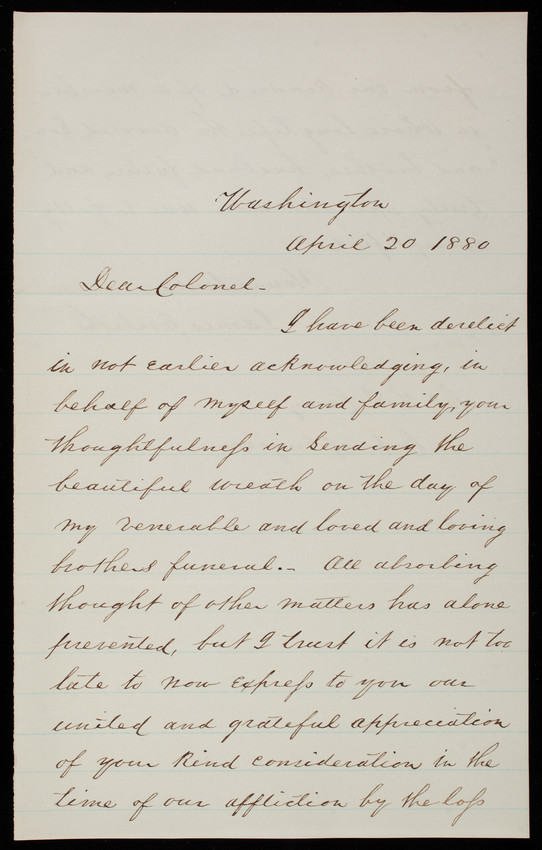 Washington
April 20 1880
Dear Colonel-
I have been derelict
in not earlier acknowledging, in
behalf of myself and family, your
thoughtfulness in sending the
beautiful wreath on the day of
my venerable and loved and loving
brothers funeral.- All absorbing
thought of other matters has alone
prevented, but I trust it is not too
late to now express to you our
united and grateful appreciation
of your kind consideration in the
time of our affliction by the loss